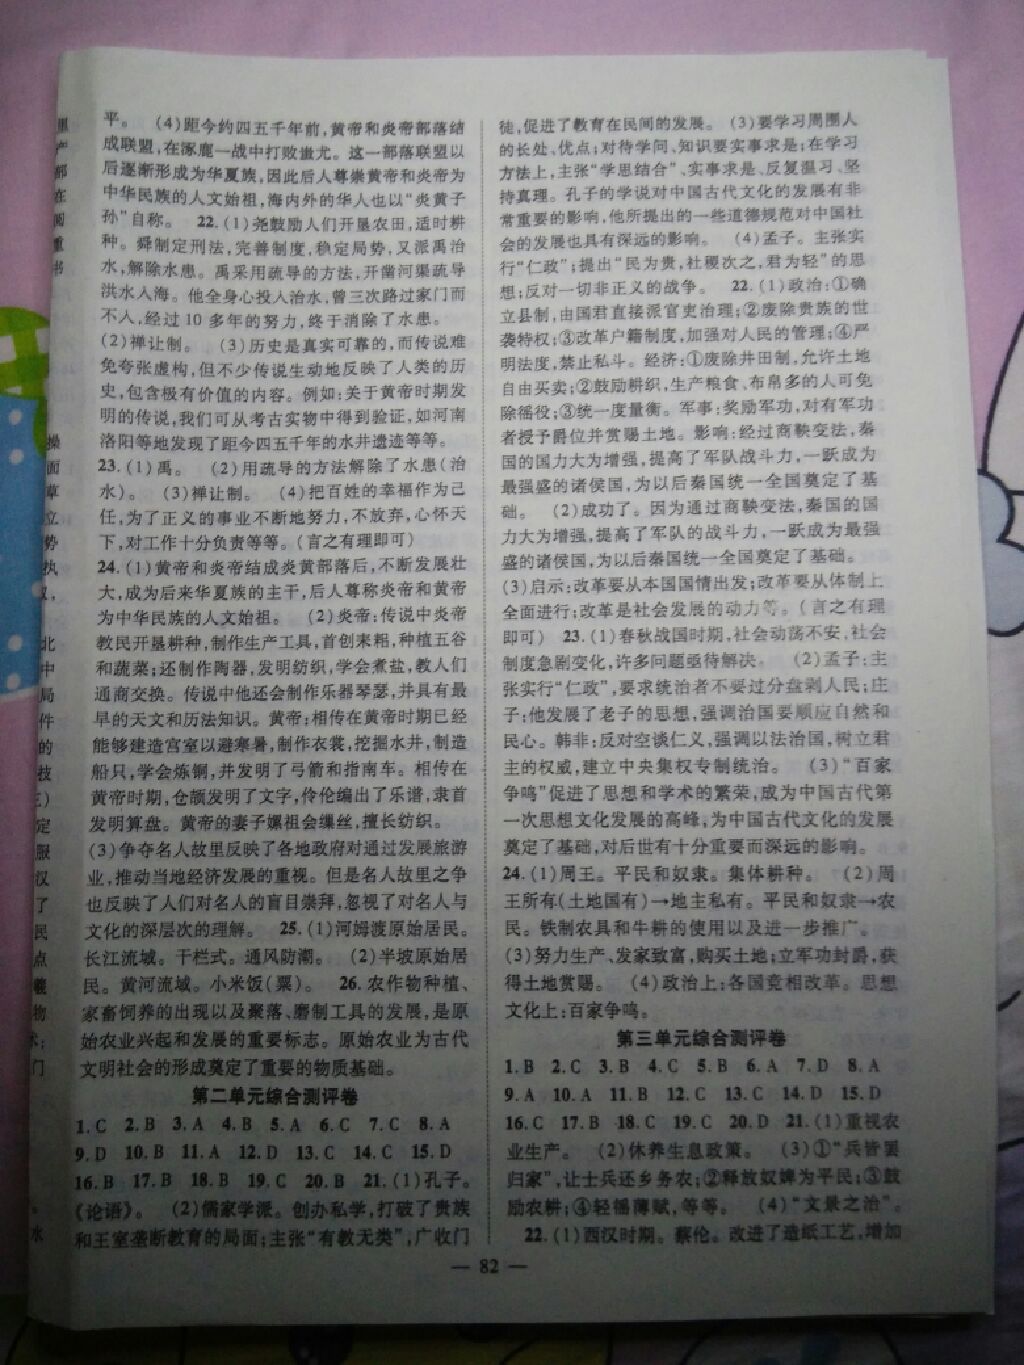 平。 (4)距今约四五千年前,黄帝和炎帝部落结
成联盟,在涿鹿一战中打败蚩尤。这一部落联盟以
后逐渐形成为华夏族,因此后人尊崇黄帝和炎帝为
中华民族的人文始祖,海内外的华人也以“炎黄子
孙”自称。 22.(1)尧鼓励人们开垦农田,适时耕
种。舜制定刑法,完善制度,稳定局势,又派禹治
水,解除水患。禹采用疏导的方法,开凿河渠疏导
洪水入海。他全身心投入治水,曾三次路过家门而
不入,经过 10 多年的努力,终于消除了水患。
(2)禅让制。 (3)历史是真实可靠的,而传说难
免夸张虚构,但不少传说生动地反映了人类的历
史,包含极有价值的内容。例如:关于黄帝时期发
明的传说,我们可从考古实物中得到验证,如河南
洛阳等地发现了距今四五千年的水井遗迹等等。
23.(1)禹。 (2)用疏导的方法解除了水患(治
水)。 (3)禅让制。 (4)把百姓的幸福作为己
任,为了正义的事业不断地努力,不放弃,心怀天
下,对工作十分负责等等。(言之有理即可)
24.(1)黄帝和炎帝结成炎黄部落后,不断发展壮
大,成为后来华夏族的主干,后人尊称炎帝和黄帝
为中华民族的人文始祖。 (2)炎帝:传说中炎帝
教民开垦耕种,制作生产工具,首创耒耜,种植五谷
和蔬菜;还制作陶器,发明纺织,学会煮盐,教人们
通商交换。传说中他还会制作乐器琴瑟,并具有最
早的天文和历法知识。黄帝:相传在黄帝时期已经
能够建造宫室以避寒暑,制作衣裳,挖掘水井,制造
船只,学会炼铜,并发明了弓箭和指南车。相传在
黄帝时期,仓颉发明了文字,伶伦编出了乐谱,隶首
发明算盘。黄帝的妻子嫘祖会缫丝,擅长纺织。
(3)争夺名人故里反映了各地政府对通过发展旅游
业,推动当地经济发展的重视。但是名人故里之争
也反映了人们对名人的盲目崇拜,忽视了对名人与
文化的深层次的理解。 25.(1)河姆渡原始居民。
长江流域。干栏式。通风防潮。 (2)半坡原始居
民。黄河流域。小米饭(粟)。 26.农作物种植、
家畜饲养的出现以及聚落、磨制工具的发展,是原
始农业兴起和发展的重要标志。原始农业为古代
文明社会的形成奠定了重要的物质基础。
第二单元综合测评卷
1.C 2.B 3.A 4.B 5.A 6.C 7.C 8.A
9.D 10.B 11.A 12.D 13.C 14.C 15.D
16.B 17.B 18.B 19.C 20.B 21.(1)孔子。
《论语》。 (2)儒家学派。创办私学,打破了贵族
和王室垄断教育的局面;主张“有教无类”,广收门
徒,促进了教育在民间的发展。 (3)要学习周围人
的长处、优点;对待学问、知识要实事求是;在学习
方法上,主张“学思结合”、实事求是、反复温习、坚
持真理。孔子的学说对中国古代文化的发展有非
常重要的影响,他所提出的一些道德规范对中国社
会的发展也具有深远的影响。 (4)孟子。主张实
行“仁政”;提出“民为贵,社稷次之,君为轻”的思
想;反对一切非正义的战争。 22.(1)政治:①确
立县制,由国君直接派官吏治理;②废除贵族的世
袭特权;③改革户籍制度,加强对人民的管理;④严
明法度,禁止私斗。经济:①废除井田制,允许土地
自由买卖;②鼓励耕织,生产粮食、布帛多的人可免
除徭役;③统一度量衡。军事:奖励军功,对有军功
者授予爵位并赏赐土地。影响:经过商鞅变法,秦
国的国力大为增强,提高了军队战斗力,一跃成为
最强盛的诸侯国,为以后秦国统一全国奠定了基
础。 (2)成功了。因为通过商鞅变法,秦国的国
力大为增强,提高了军队的战斗力,一跃成为最强
盛的诸侯国,为以后秦国统一全国奠定了基础。
(3)启示:改革要从本国国情出发;改革要从体制上
全面进行;改革是社会发展的动力等。(言之有理
即可) 23.(1)春秋战国时期,社会动荡不安,社会
制度急剧变化,许多问题亟待解决。 (2)孟子:主
张实行“仁政”,要求统治者不要过分盘剥人民;庄
子:他发展了老子的思想,强调治国要顺应自然和
民心。韩非:反对空谈仁义,强调以法治国,树立君
主的权威,建立中央集权专制统治。 (3)“百家
争鸣”促进了思想和学术的繁荣,成为中国古代第
一次思想文化发展的高峰,为中国古代文化的发展
奠定了基础,对后世有十分重要而深远的影响。
24.(1)周王。平民和奴隶。集体耕种。 (2)周
王所有(土地国有)→地主私有。平民和奴隶→农
民。铁制农具和牛耕的使用以及进一步推广。
(3)努力生产、发家致富,购买土地;立军功封爵,获
得土地赏赐。 (4)政治上:各国竞相改革。思想
文化上:百家争鸣。
第三单元综合测评卷
1.B 2.B 3.B 4.C 5.B 6.A 7.D 8.A
9.A 10.A 11.B 12.C 13.C 14.D 15.D
16.C 17.B 18.C 19.C 20.D 21.(1)重视农
业生产。 (2)休养生息政策。 (3)①“兵皆罢
归家”,让士兵还乡务农;②释放奴婢为平民;③鼓
励农耕;④轻徭薄赋,等等。 (4)“文景之治”。
22.(1)西汉时期。蔡伦。改进了造纸工艺,增加
— 82 —